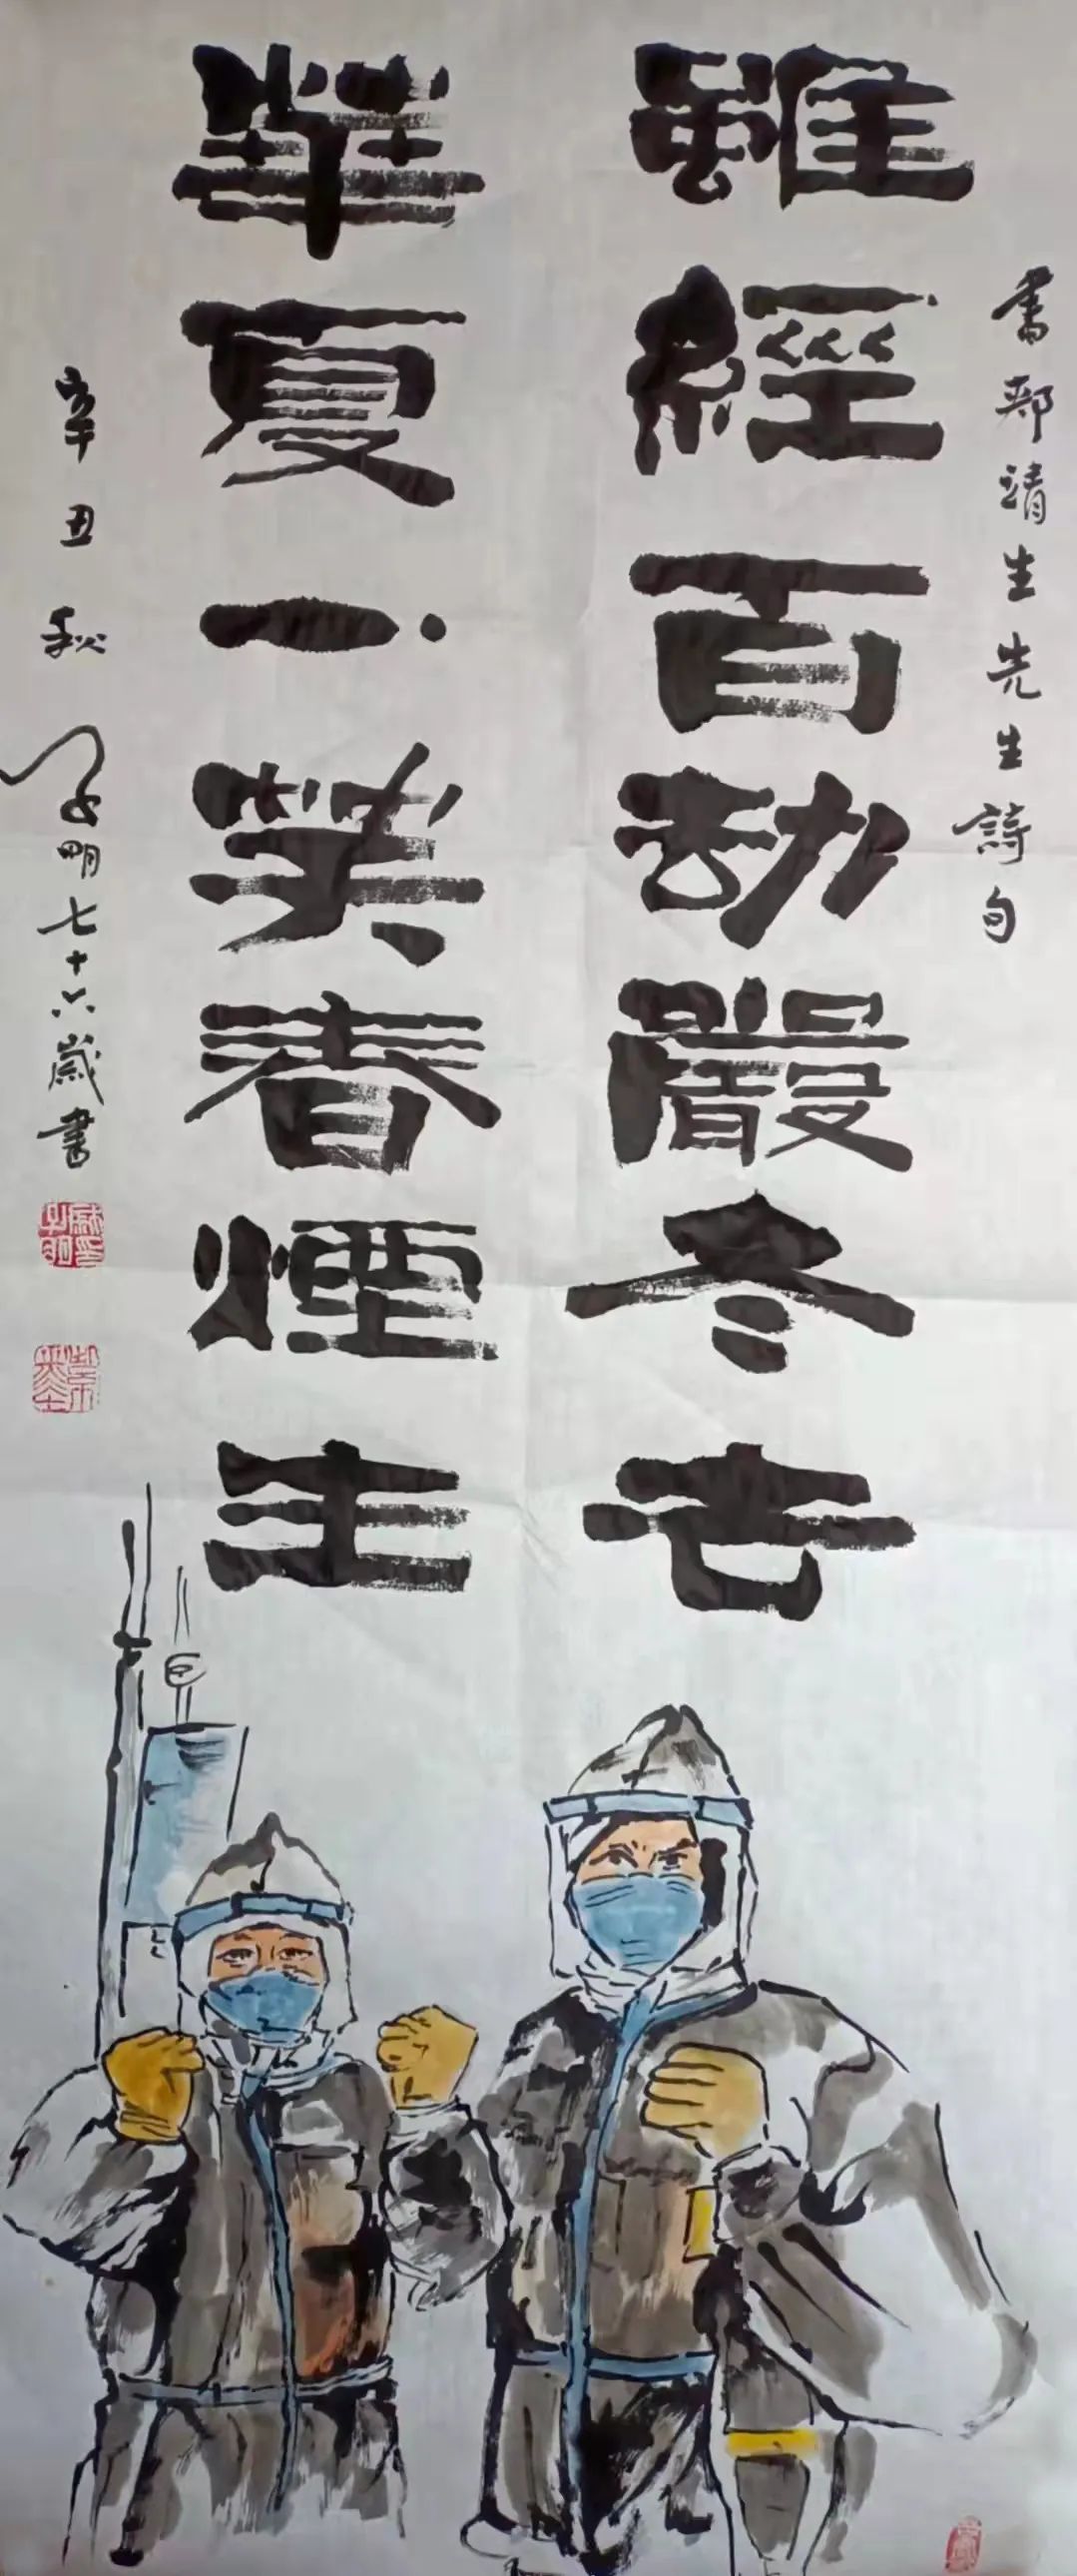 書郟靖生先生詩句
雖經百劫嚴冬去
華夏一笑春煙生
辛丑秋
明七十六歲書